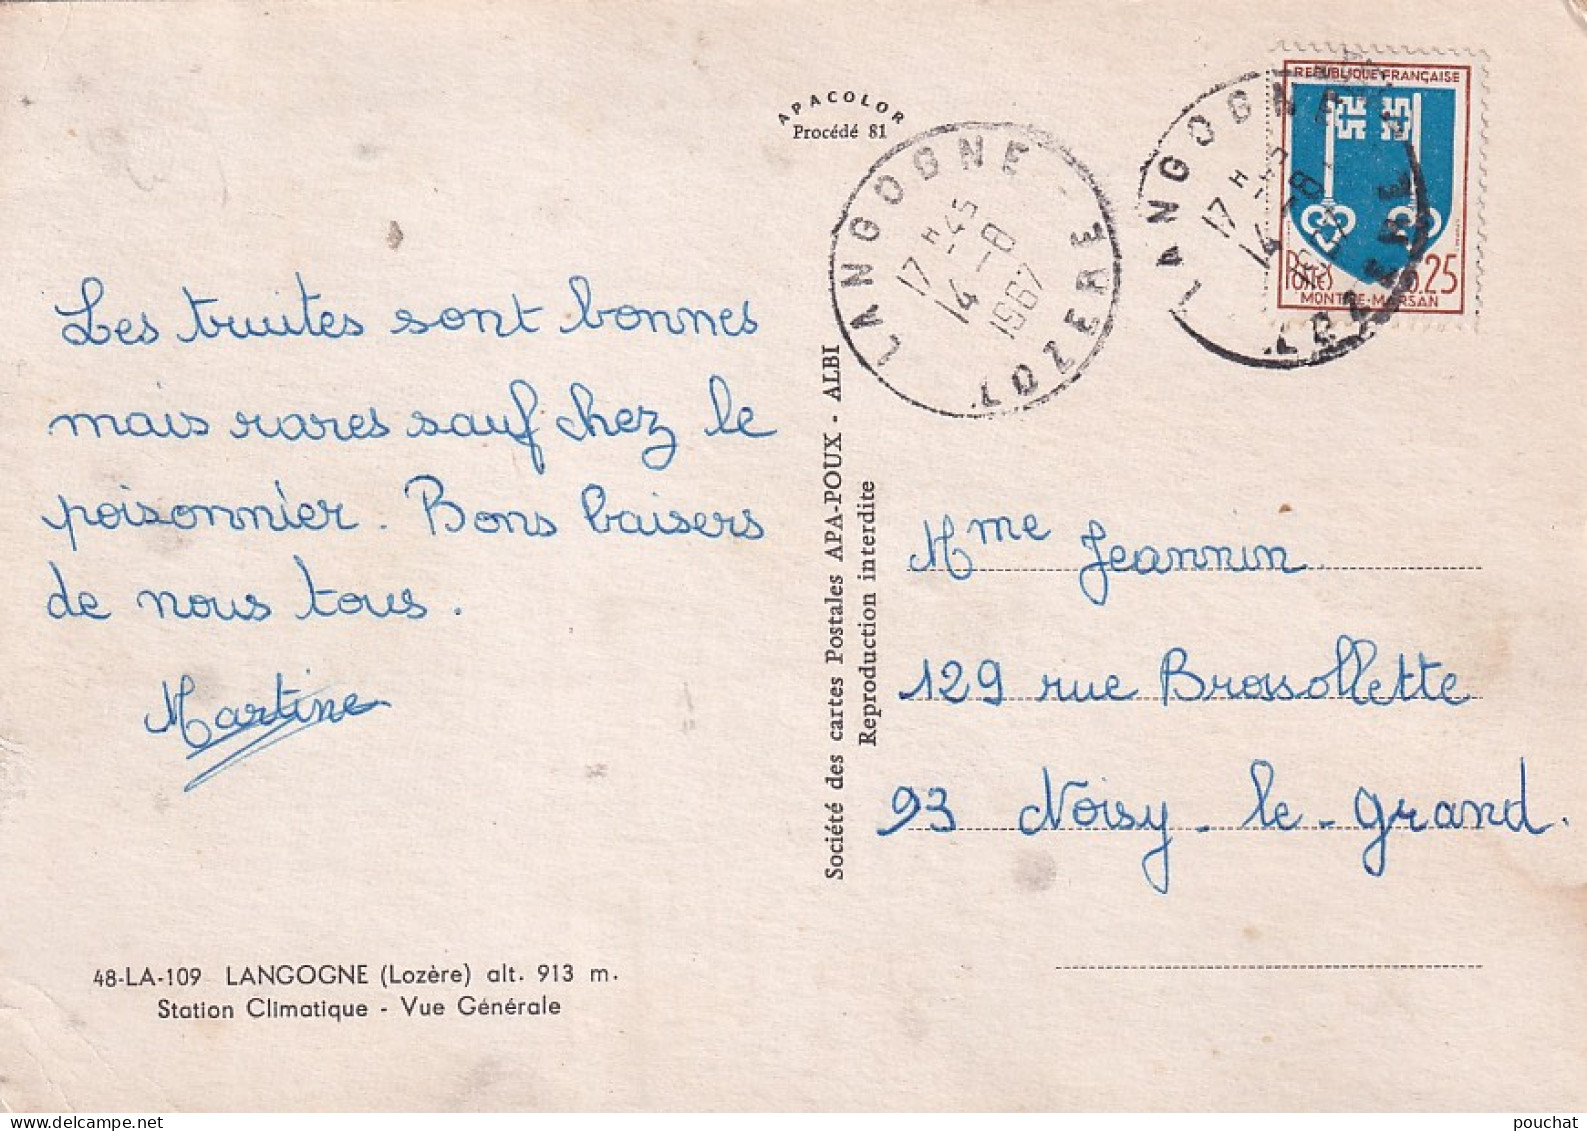 APACOLOR
Procédé 81
Les truites sont bonnes
mais rares sauf chez le
poisonnier. Bons baisers
de nous tous.
Martine
48-LA-109 LANGOGNE (Lozère) alt. 913 m.
Station Climatique - Vue Générale
Société des cartes Postales APA-POUX - ALBI
Reproduction interdite
LANGOGNE - LOZERE
17 H 45
14 -8
1967
LANGOGNE LOZERE
17 H 45
14 -8
REPUBLIQUE FRANÇAISE
POSTES 0.25
MONT-DE-MARSAN
Mme Jeannin
129 rue Brossollette
93 Noisy-le-Grand.
pouchat